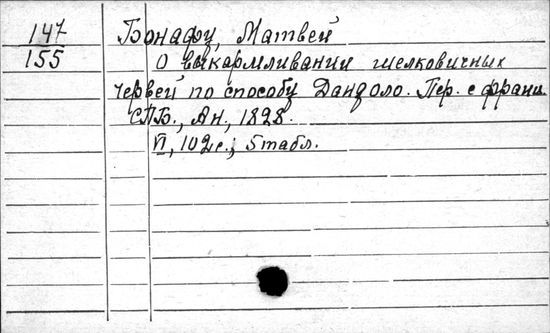 147 Бонафу, Матвей
155 О выкармливании шелковичных
червей по способу Дандоло. Пер. с франц.
СПБ., Ан., 1828.
VI, 102с.; 5 табл.